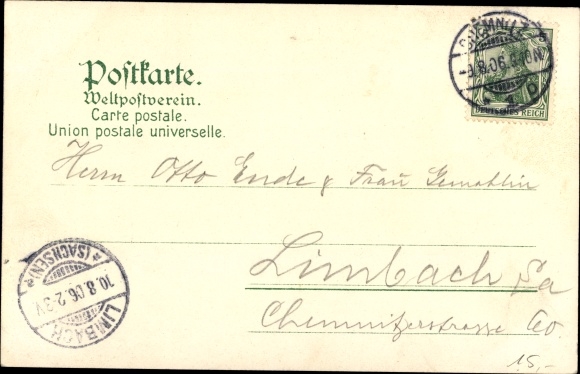 Postkarte.
Weltpostverein.
Carte postale.
Union postale universelle.
CHEMNITZ
9.8.06.
1 D
DEUTSCHES REICH
5
Herrn Otto Ende & Frau Gemahlin
Limbach Sa
Chemnitzerstrasse
LIMBACH
*(SACHSEN)*
10.8.06.2-3V.
15,-